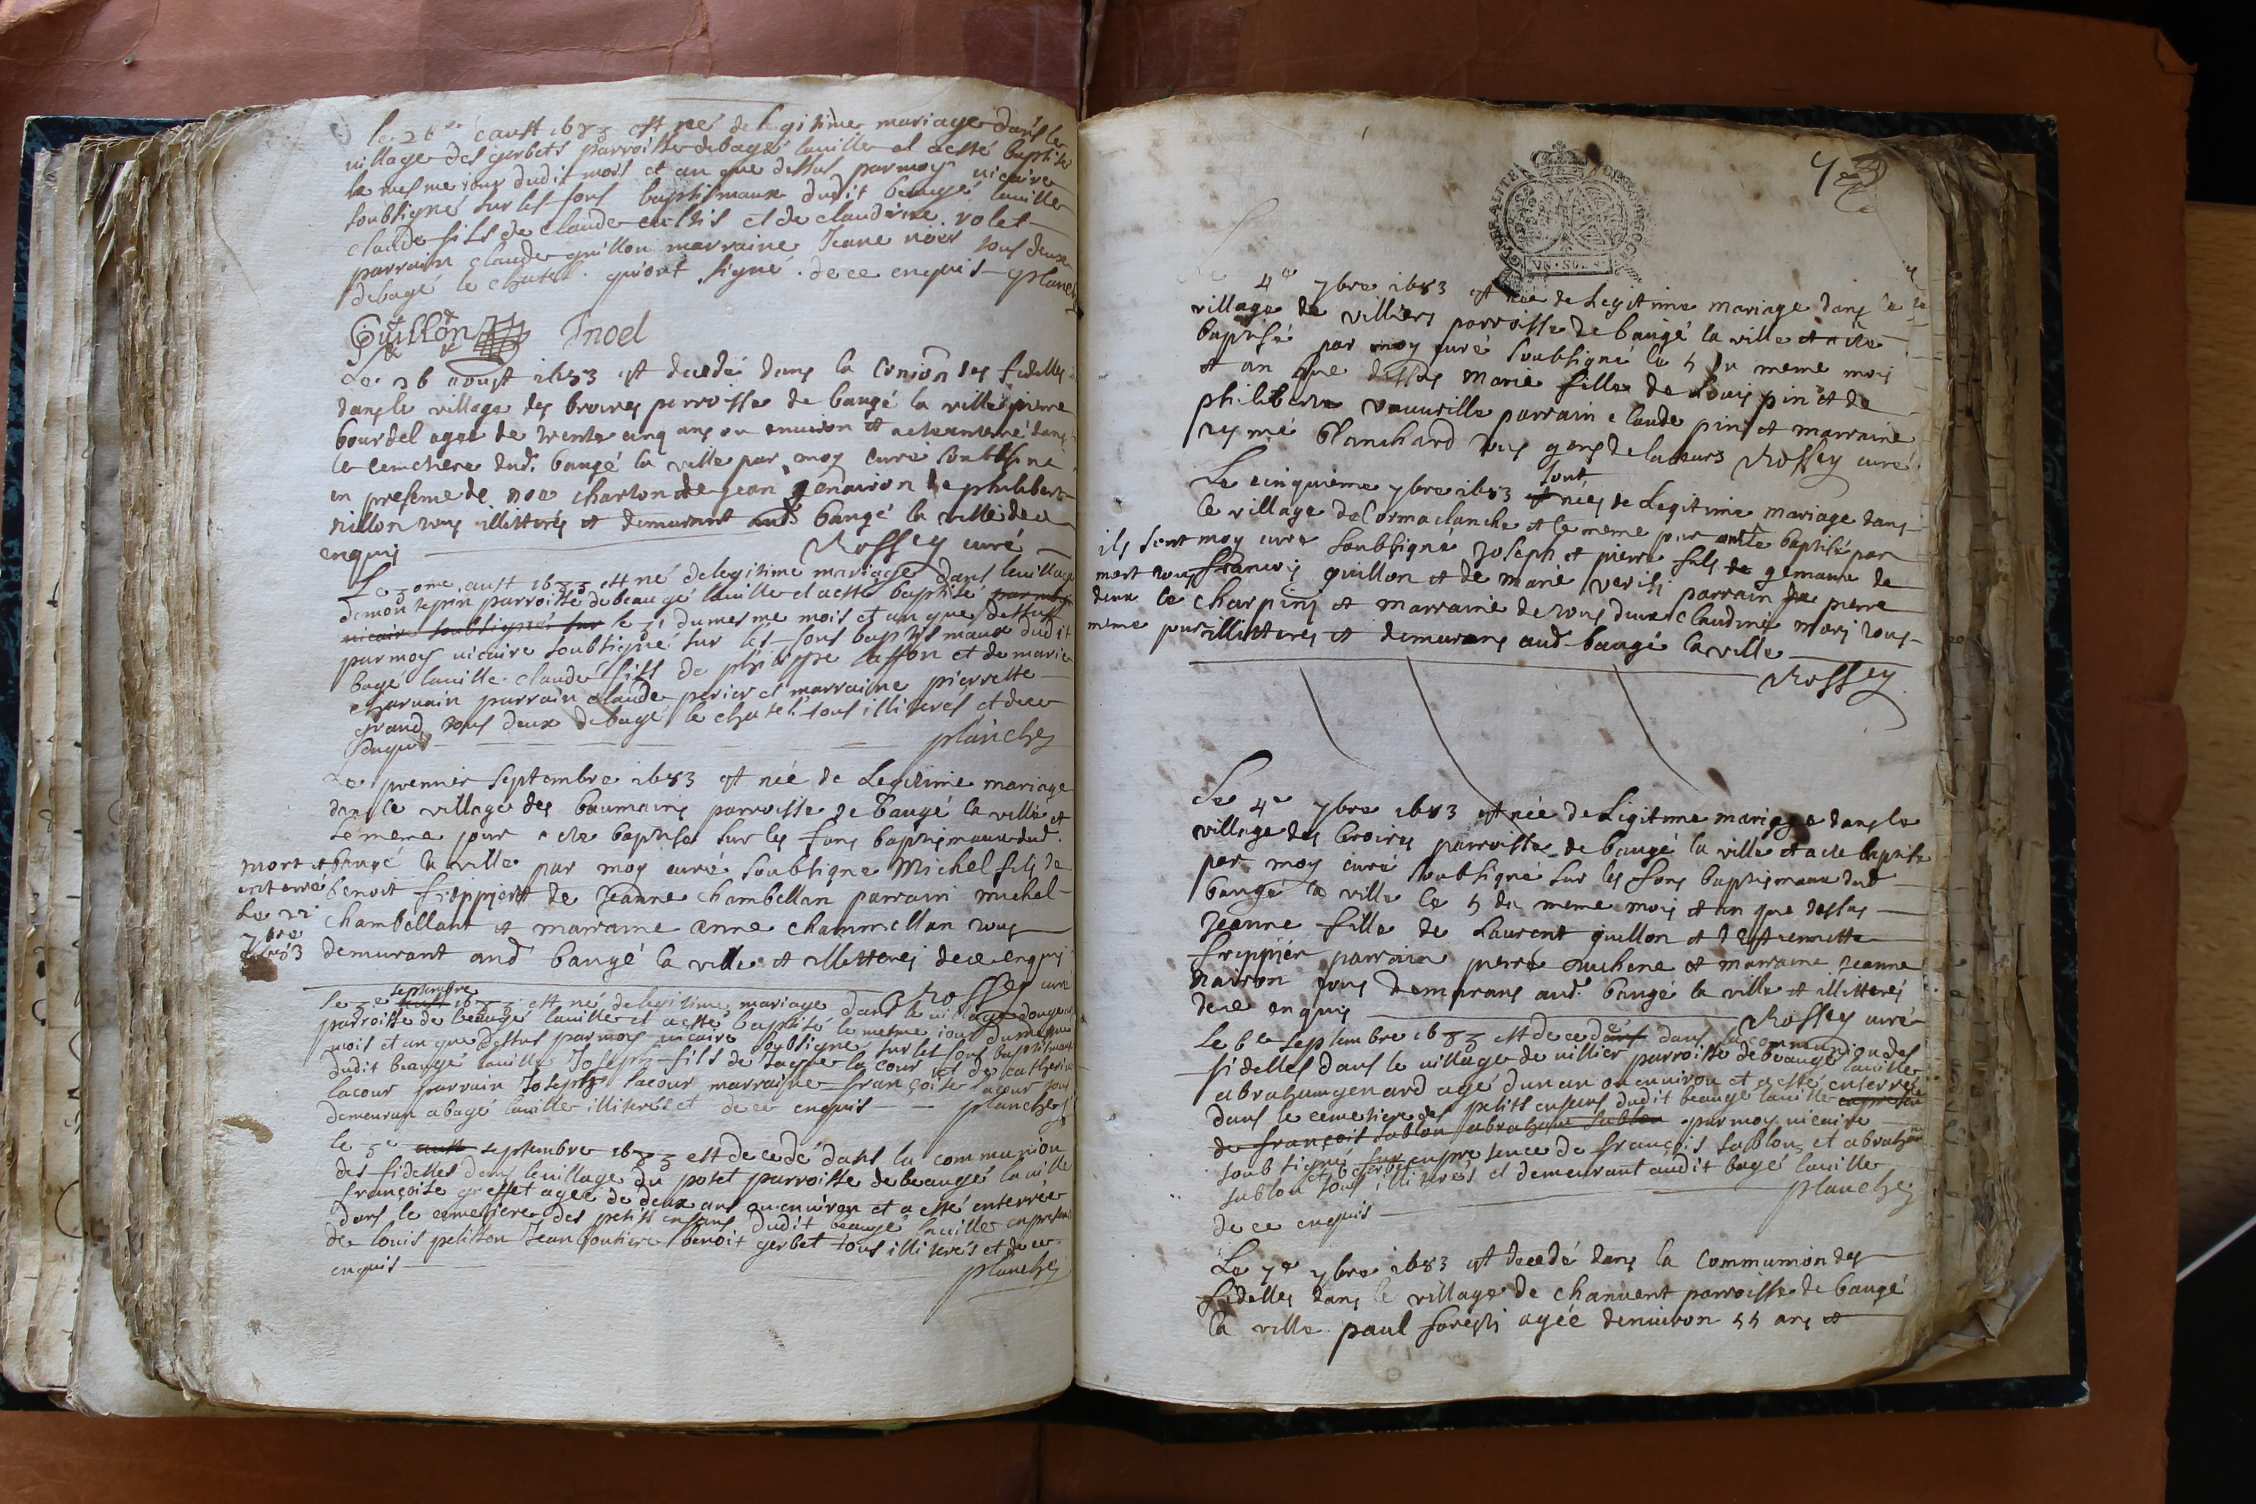 le 26 aust 1683 est né de legitime mariage dans le
village des gerbets parroisse de bagé lauille et a esté baptisé
le mesme iour dudit mois et an que dessus par moy vicaire
soubsigné sur les fons baptismaux dudit beaugé lauille
claude fils de claude et de claudine rolet
parrain claude guillon marraine Jeane noier tous deux
de bagé le chatel qui ont signé de ce enquis planchez
Guillon Jnoel
Le 26 aoust 1683 est decedé dans la Comion des fidelles
dans le village des broires parroisse de baugé la ville pierre
bourdel agee de trente cinq ans ou environ et a esté enterré dans
le cemetiere dud. baugé la ville par moy curé soubsine
en presence de noe charlon de jean genairon de philibert
nillon tous illitterés et demurant aud baugé la ville de ce
enquis
Rossey curé
Le 30me aust 1683 est né de legitime mariage dans leuillage
de mon sepin parroisse de beaugé lauille et a esté baptisé par moy
vicaire soubsigné sur le 31 du mesme mois et an que dessus
par moy vicaire soubsigné sur les fons baptismaux dudit
bagé lauille claude fils de philippe et de marie
charuain parrain claude perier et marraine pierrette
grand tous deux de bagé le chatel tous illiterés et de ce
enquis
planchez
Le premier septembre 1683 est née de Legitime mariage
dans le village des baumains parroisse de baugé la ville et
le meme jour a ete baptisé sur les fons baptismaux dud.
baugé la ville par moy curé soubsigné Michel fils de
benoit freppier et de Jeanne chambellan parrain michel
chambellant et marraine anne chammellan tous
demurant aud baugé la ville et illitterés de ce enquis
Rossey curé
mort et
enterré
Le 22
7bre
1683
Le 3e aust septembre 1683 est né de legitime mariage dans le village
parroisse de beaugé lauille et a esté baptisé le mesme iour du mesme
mois et an que dessus par moy vicaire soubsigné sur les fons baptismaux
dudit beaugé lauille Joseph fils de Jaque lacour et de catherine
lacour parrain Joseph lacour marraine françoise lacour tous
demeuran a bagé lauille illiterés et de ce enquis planchez
le 5e aust septembre 1683 est decedé dans la communion
des fidelles dans leuillage du potet parroisse de beaugé la uille
françoise greffet agée de deux ans ou enuiron et a esté enterrée
dans le cemetiere des petits enfans dudit beaugé lauille en presence
de louis pelisson Jean benoit gerbet tous illiterés et de ce
enquis
planchez
VN SOL
4e 7bre 1683 est née de Legitime mariage dans le
village de villiers parroisse de baugé la ville et a ete
baptisé par moy curé soubsigné le 5 du meme mois
et an que dessus marie fille de Louis pin et de
philiberte vauuille parrain claude pin et marraine
reymé blanchard tous gens de labeurs Rossey curé
Le cinquieme 7bre 1683 est sont nées de Legitime mariage dans
le village de Cormaclanche et le meme jour ont ete baptisé par
moy curé soubsigné Joseph et pierre fils de gemaux de
francois guillon et de marie parrain de pierre
le charpini et marraine de tous deux claudine mory tous
illitterés et demurans aud baugé la ville
Rossey
ils sont
mort tous
deux le
meme jour
Le 4e 7bre 1683 est née de Ligitime mariage dans le
village des broires parroisse de baugé la ville et a ete baptisé
par moy curé soubsigné sur les fons baptismaux dud
baugé la ville le 5 du meme mois et an que dessus
Jeanne fille de Laurent guillon et d estiennette
freppier parrain pierre duchene et marraine jeanne
nairon tous demurans aud. baugé la ville et illitterés
de ce enquis
Rossey curé
Le 6e septembre 1683 est decedé dans la communion des
fidelles dans le uillage de uillier parroisse de beaugé lauille
abraham genard agé dun an ou enuiron et a esté enterré
dans le cemetiere des petits enfans dudit beaugé lauille en presence
de françois sablon abraham sablon par moy vicaire
soubsigné sur en presence de françois sablon et abraham
sablon tous illiterés et demeurant audit bagé lauille
de ce enquis
planchez
Le 7e 7bre 1683 est decedé dans la Communion des
fidelles dans le village de chanuent parroisse de baugé
la ville paul foresti agée denuiron 55 ans et